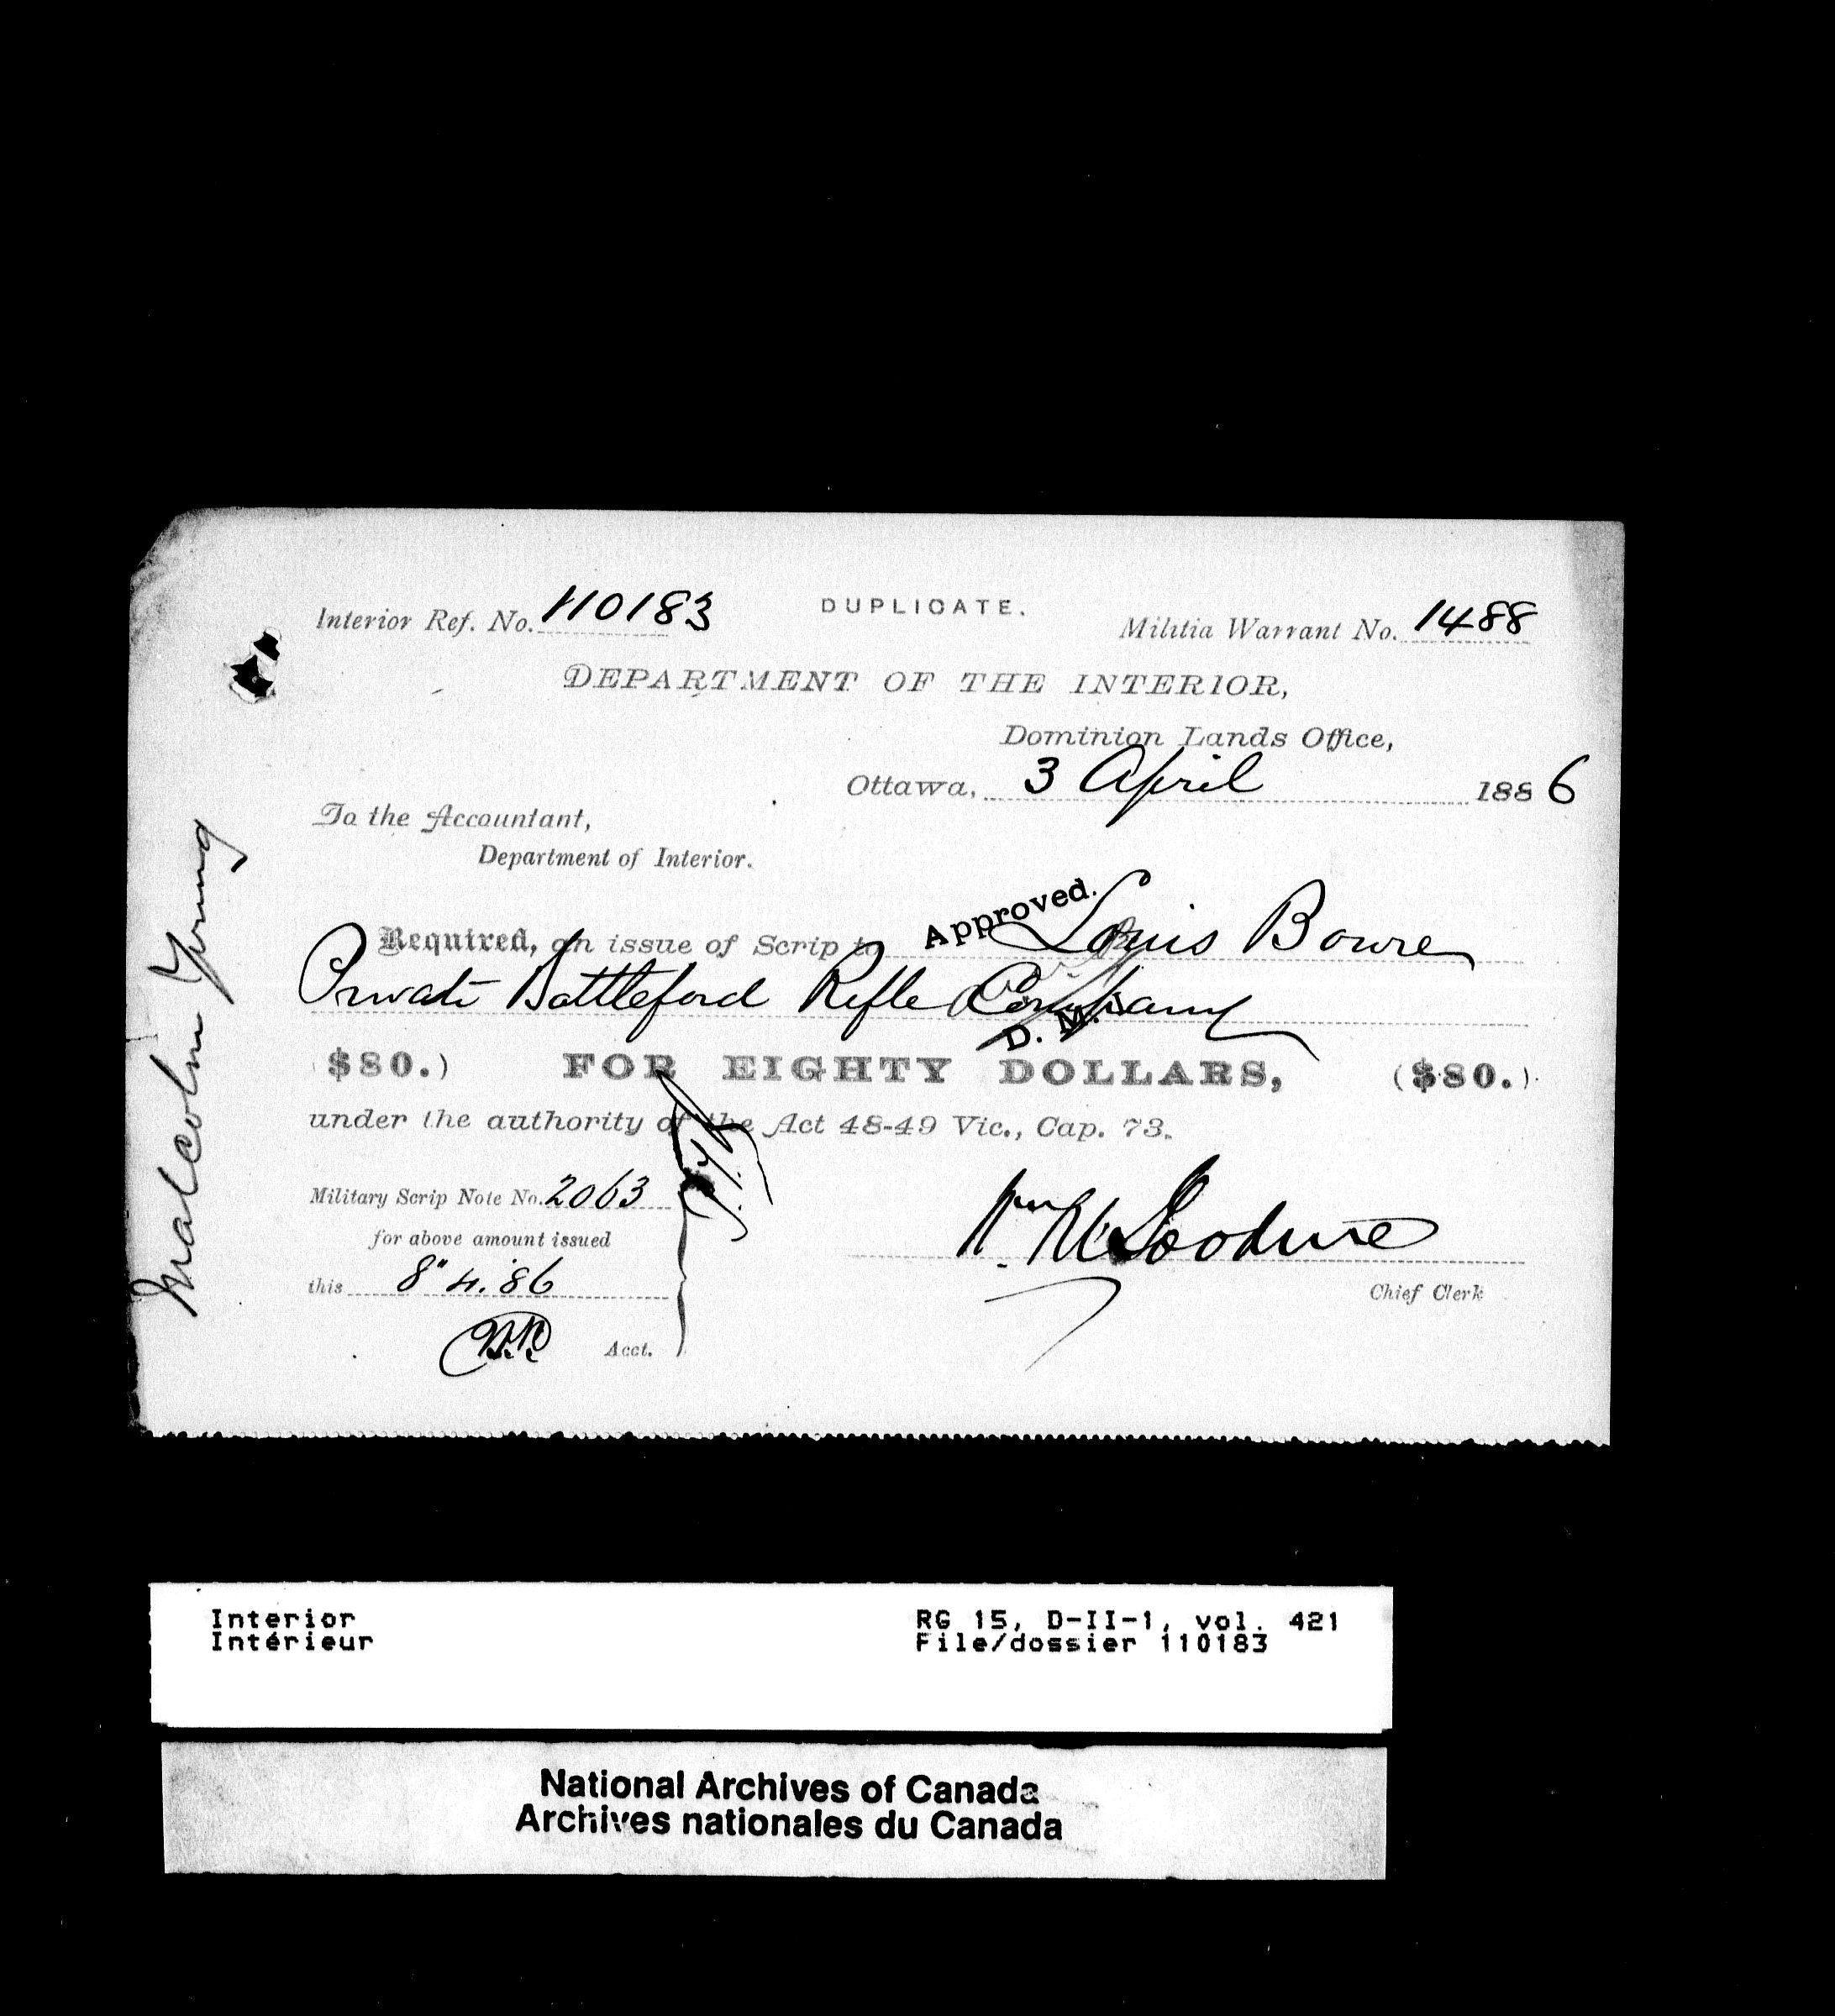 Interior Ref. No. 110183
DUPLICATE.
Militia Warrant No. 1488
DEPARTMENT OF THE INTERIOR,
Dominion Lands Office,
Ottawa, 3 April 1886
To the Accountant,
Department of Interior.
Approved.
Required, an issue of Scrip to Louis Bowre
Private Battleford Rifle Company
D. M. I.
$80.) FOR EIGHTY DOLLARS, ($80.)
under the authority of the Act 48-49 Vic., Cap. 73.
Military Scrip Note No. 2063
for above amount issued
this 8" 4. 86
Acct.
Chief Clerk
Malcolm Young
Interior
Intérieur
RG 15, D-II-1, vol. 421
File/dossier 110183
National Archives of Canada
Archives nationales du Canada